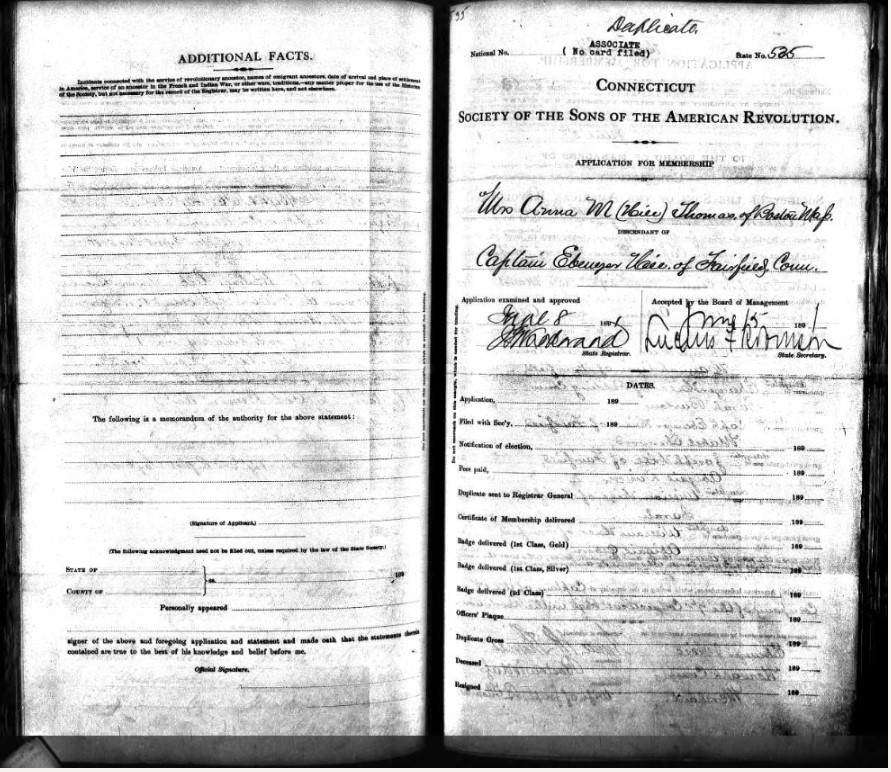 ADDITIONAL FACTS.
Incidents connected with the service of revolutionary ancestor, names of emigrant ancestors, date of arrival and place of settlement
in America, service of an ancestor in the French and Indian War, or other wars, traditions,—any matter proper for the use of the Historian
of the Society, but not necessary for the record of the Registrar, may be written here, and not elsewhere.
The following is a memorandum of the authority for the above statement:
(Signature of Applicant.)
(The following acknowledgment need not be filled out, unless required by the law of the State Society.)
STATE OF
ss.
189
COUNTY OF
Personally appeared
signer of the above and foregoing application and statement and made oath that the statements therein
contained are true to the best of his knowledge and belief before me.
Official Signature.
Duplicate.
ASSOCIATE
National No. ( No card filed) State No. 535
CONNECTICUT
SOCIETY OF THE SONS OF THE AMERICAN REVOLUTION.
APPLICATION FOR MEMBERSHIP
Mrs Anna M (Hill) Thomas, of Boston Mass.
DESCENDANT OF
Captain Ebenezer Hill, of Fairfield, Conn.
Application examined and approved
8 1891
State Registrar.
Accepted by the Board of Management
June 15 1891
Lucius F Robinson
State Secretary.
DATES.
Application, 189
Filed with Sec'y, 189
Notification of election, 189
Fees paid, 189
Duplicate sent to Registrar General 189
Certificate of Membership delivered 189
Badge delivered (1st Class, Gold) 189
Badge delivered (1st Class, Silver) 189
Badge delivered (2d Class) 189
Officers' Plaque 189
Duplicate Gross 189
Deceased 189
Resigned 189